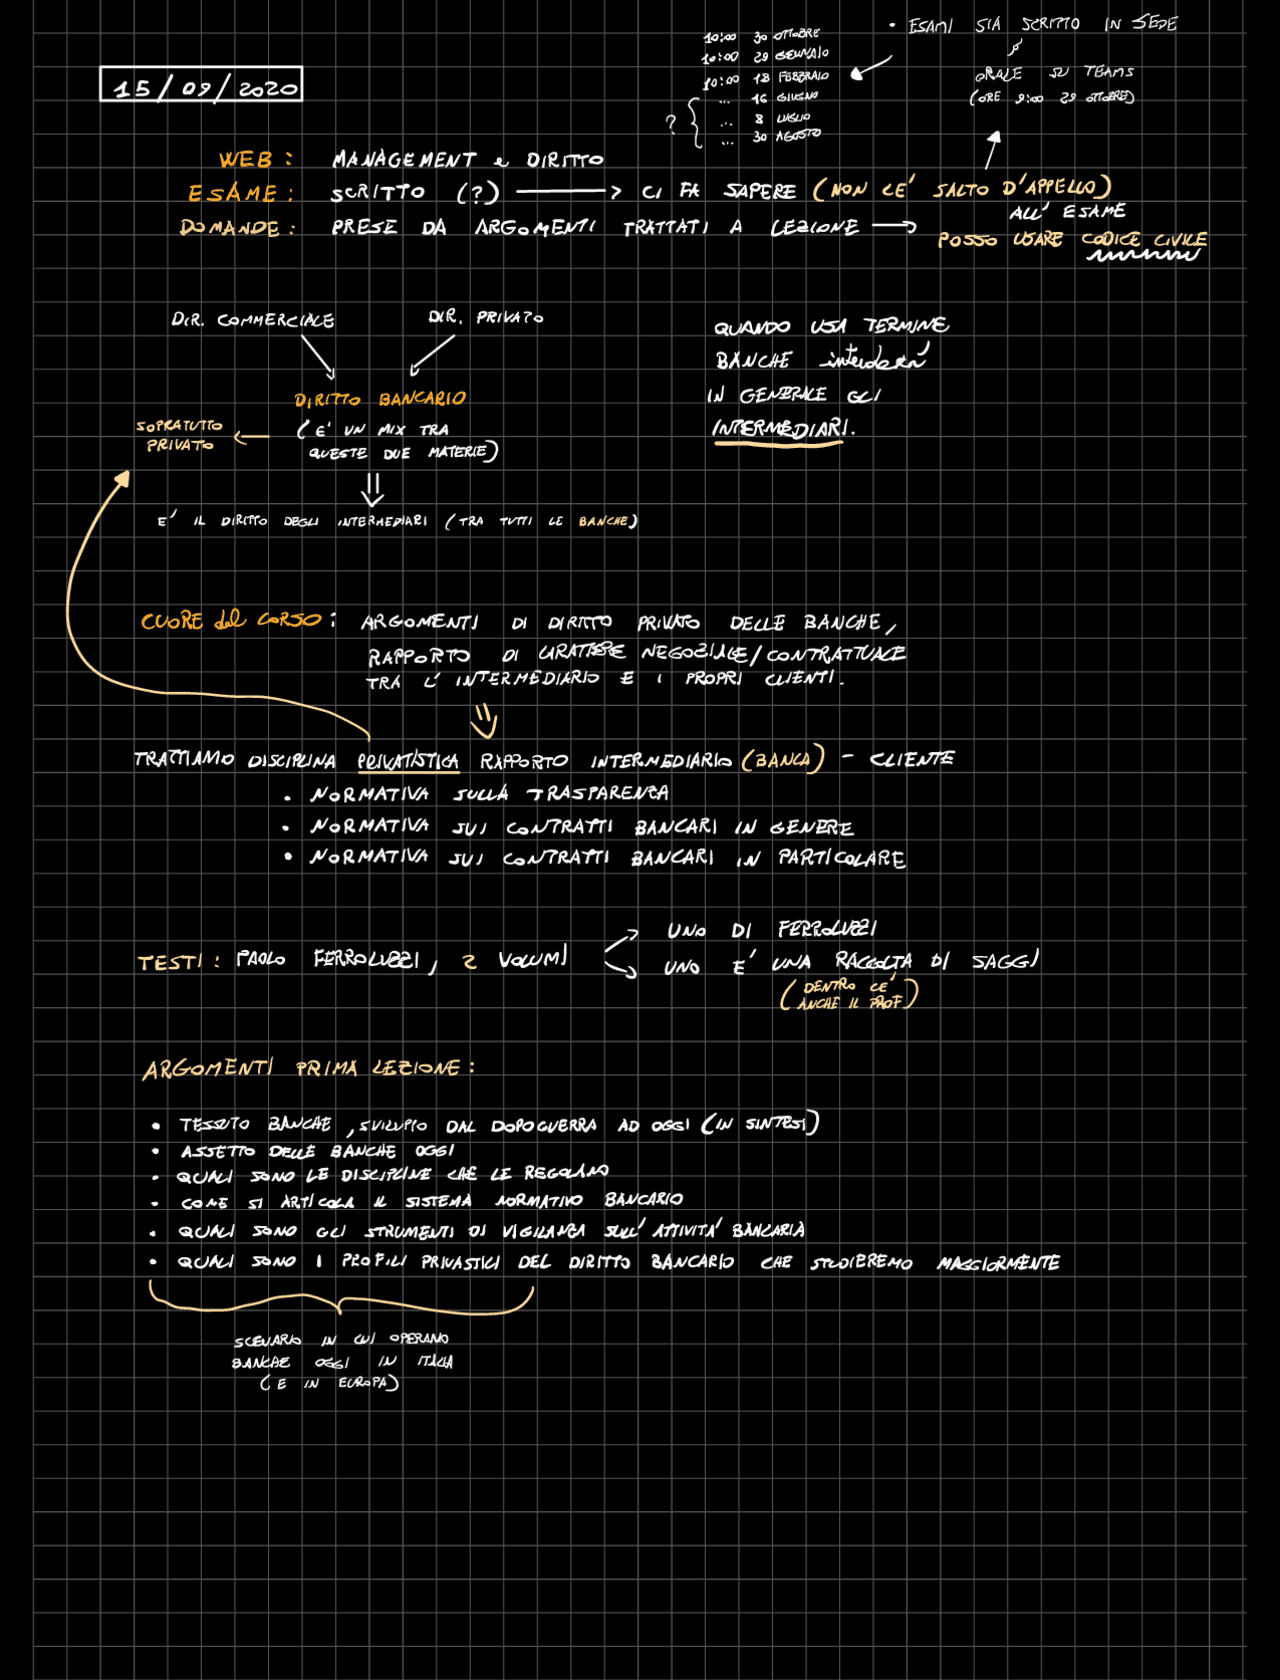 • ESAMI SIA SCRITTO IN SEDE
ORALE SU TEAMS
(ORE 9:00 29 OTTOBRE)
10:00 30 OTTOBRE
10:00 29 GENNAIO
10:00 18 FEBBRAIO
... 16 GIUGNO
? { ... 8 LUGLIO
... 30 AGOSTO
15/09/2020
WEB: MANAGEMENT e DIRITTO
ESAME: SCRITTO (?) → CI FA SAPERE (NON CE' SALTO D'APPELLO)
DOMANDE: PRESE DA ARGOMENTI TRATTATI A LEZIONE →
ALL' ESAME
POSSO USARE CODICE CIVILE
DIR. COMMERCIALE
DIR. PRIVATO
DIRITTO BANCARIO
(E' UN MIX TRA
QUESTE DUE MATERIE)
SOPRATUTTO
PRIVATO
E' IL DIRITTO DEGLI INTERMEDIARI (TRA TUTTI LE BANCHE)
QUANDO USA TERMINE
BANCHE intenderà
IN GENERALE GLI
INTERMEDIARI.
CUORE del CORSO: ARGOMENTI DI DIRITTO PRIVATO DELLE BANCHE,
RAPPORTO DI CARATTERE NEGOZIALE/CONTRATTUALE
TRA L'INTERMEDIARIO E I PROPRI CLIENTI.
TRATTIAMO DISCIPLINA PRIVATISTICA RAPPORTO INTERMEDIARIO (BANCA) - CLIENTE
• NORMATIVA SULLA TRASPARENZA
• NORMATIVA SUI CONTRATTI BANCARI IN GENERE
• NORMATIVA SUI CONTRATTI BANCARI IN PARTICOLARE
TESTI: PAOLO FERROLUZZI, 2 VOLUMI
UNO DI FERROLUZZI
UNO E' UNA RACCOLTA DI SAGGI
(DENTRO CE'
ANCHE IL PROF)
ARGOMENTI PRIMA LEZIONE:
• TESSUTO BANCHE, SVILUPPO DAL DOPOGUERRA AD OGGI (IN SINTESI)
• ASSETTO DELLE BANCHE OGGI
• QUALI SONO LE DISCIPLINE CHE LE REGOLANO
• COME SI ARTICOLA IL SISTEMA NORMATIVO BANCARIO
• QUALI SONO GLI STRUMENTI DI VIGILANZA SULL'ATTIVITA' BANCARIA
• QUALI SONO I PROFILI PRIVASTICI DEL DIRITTO BANCARIO CHE STUDIEREMO MAGGIORMENTE
SCENARIO IN CUI OPERANO
BANCHE OGGI IN ITALIA
(E IN EUROPA)